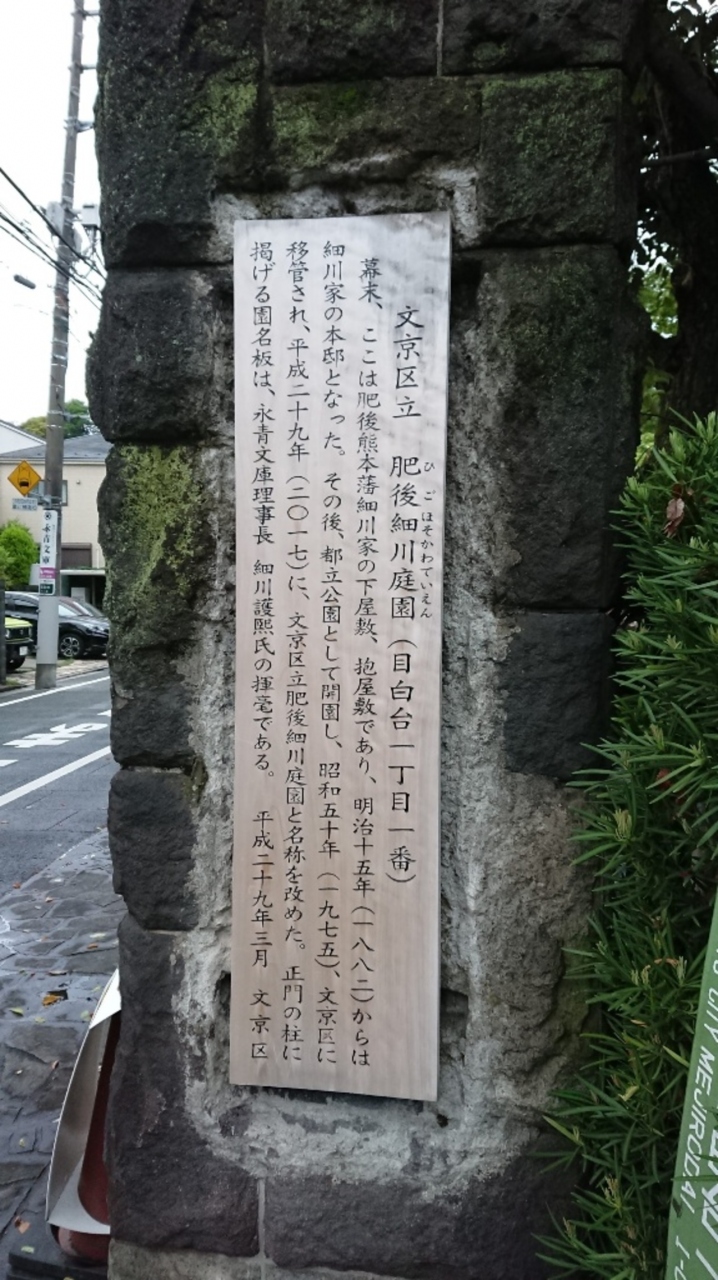 文京区立 肥後細川庭園（目白台一丁目一番）
ひご ほそかわていえん
幕末、ここは肥後熊本藩細川家の下屋敷、抱屋敷であり、明治十五年（一八八二）からは
細川家の本邸となった。その後、都立公園として開園し、昭和五十年（一九七五）、文京区に
移管され、平成二十九年（二〇一七）に、文京区立肥後細川庭園と名称を改めた。正門の柱に
掲げる園名板は、永青文庫理事長 細川護熙氏の揮毫である。 平成二十九年三月 文京区
永青文庫
CITY MEJIRODAI 1-